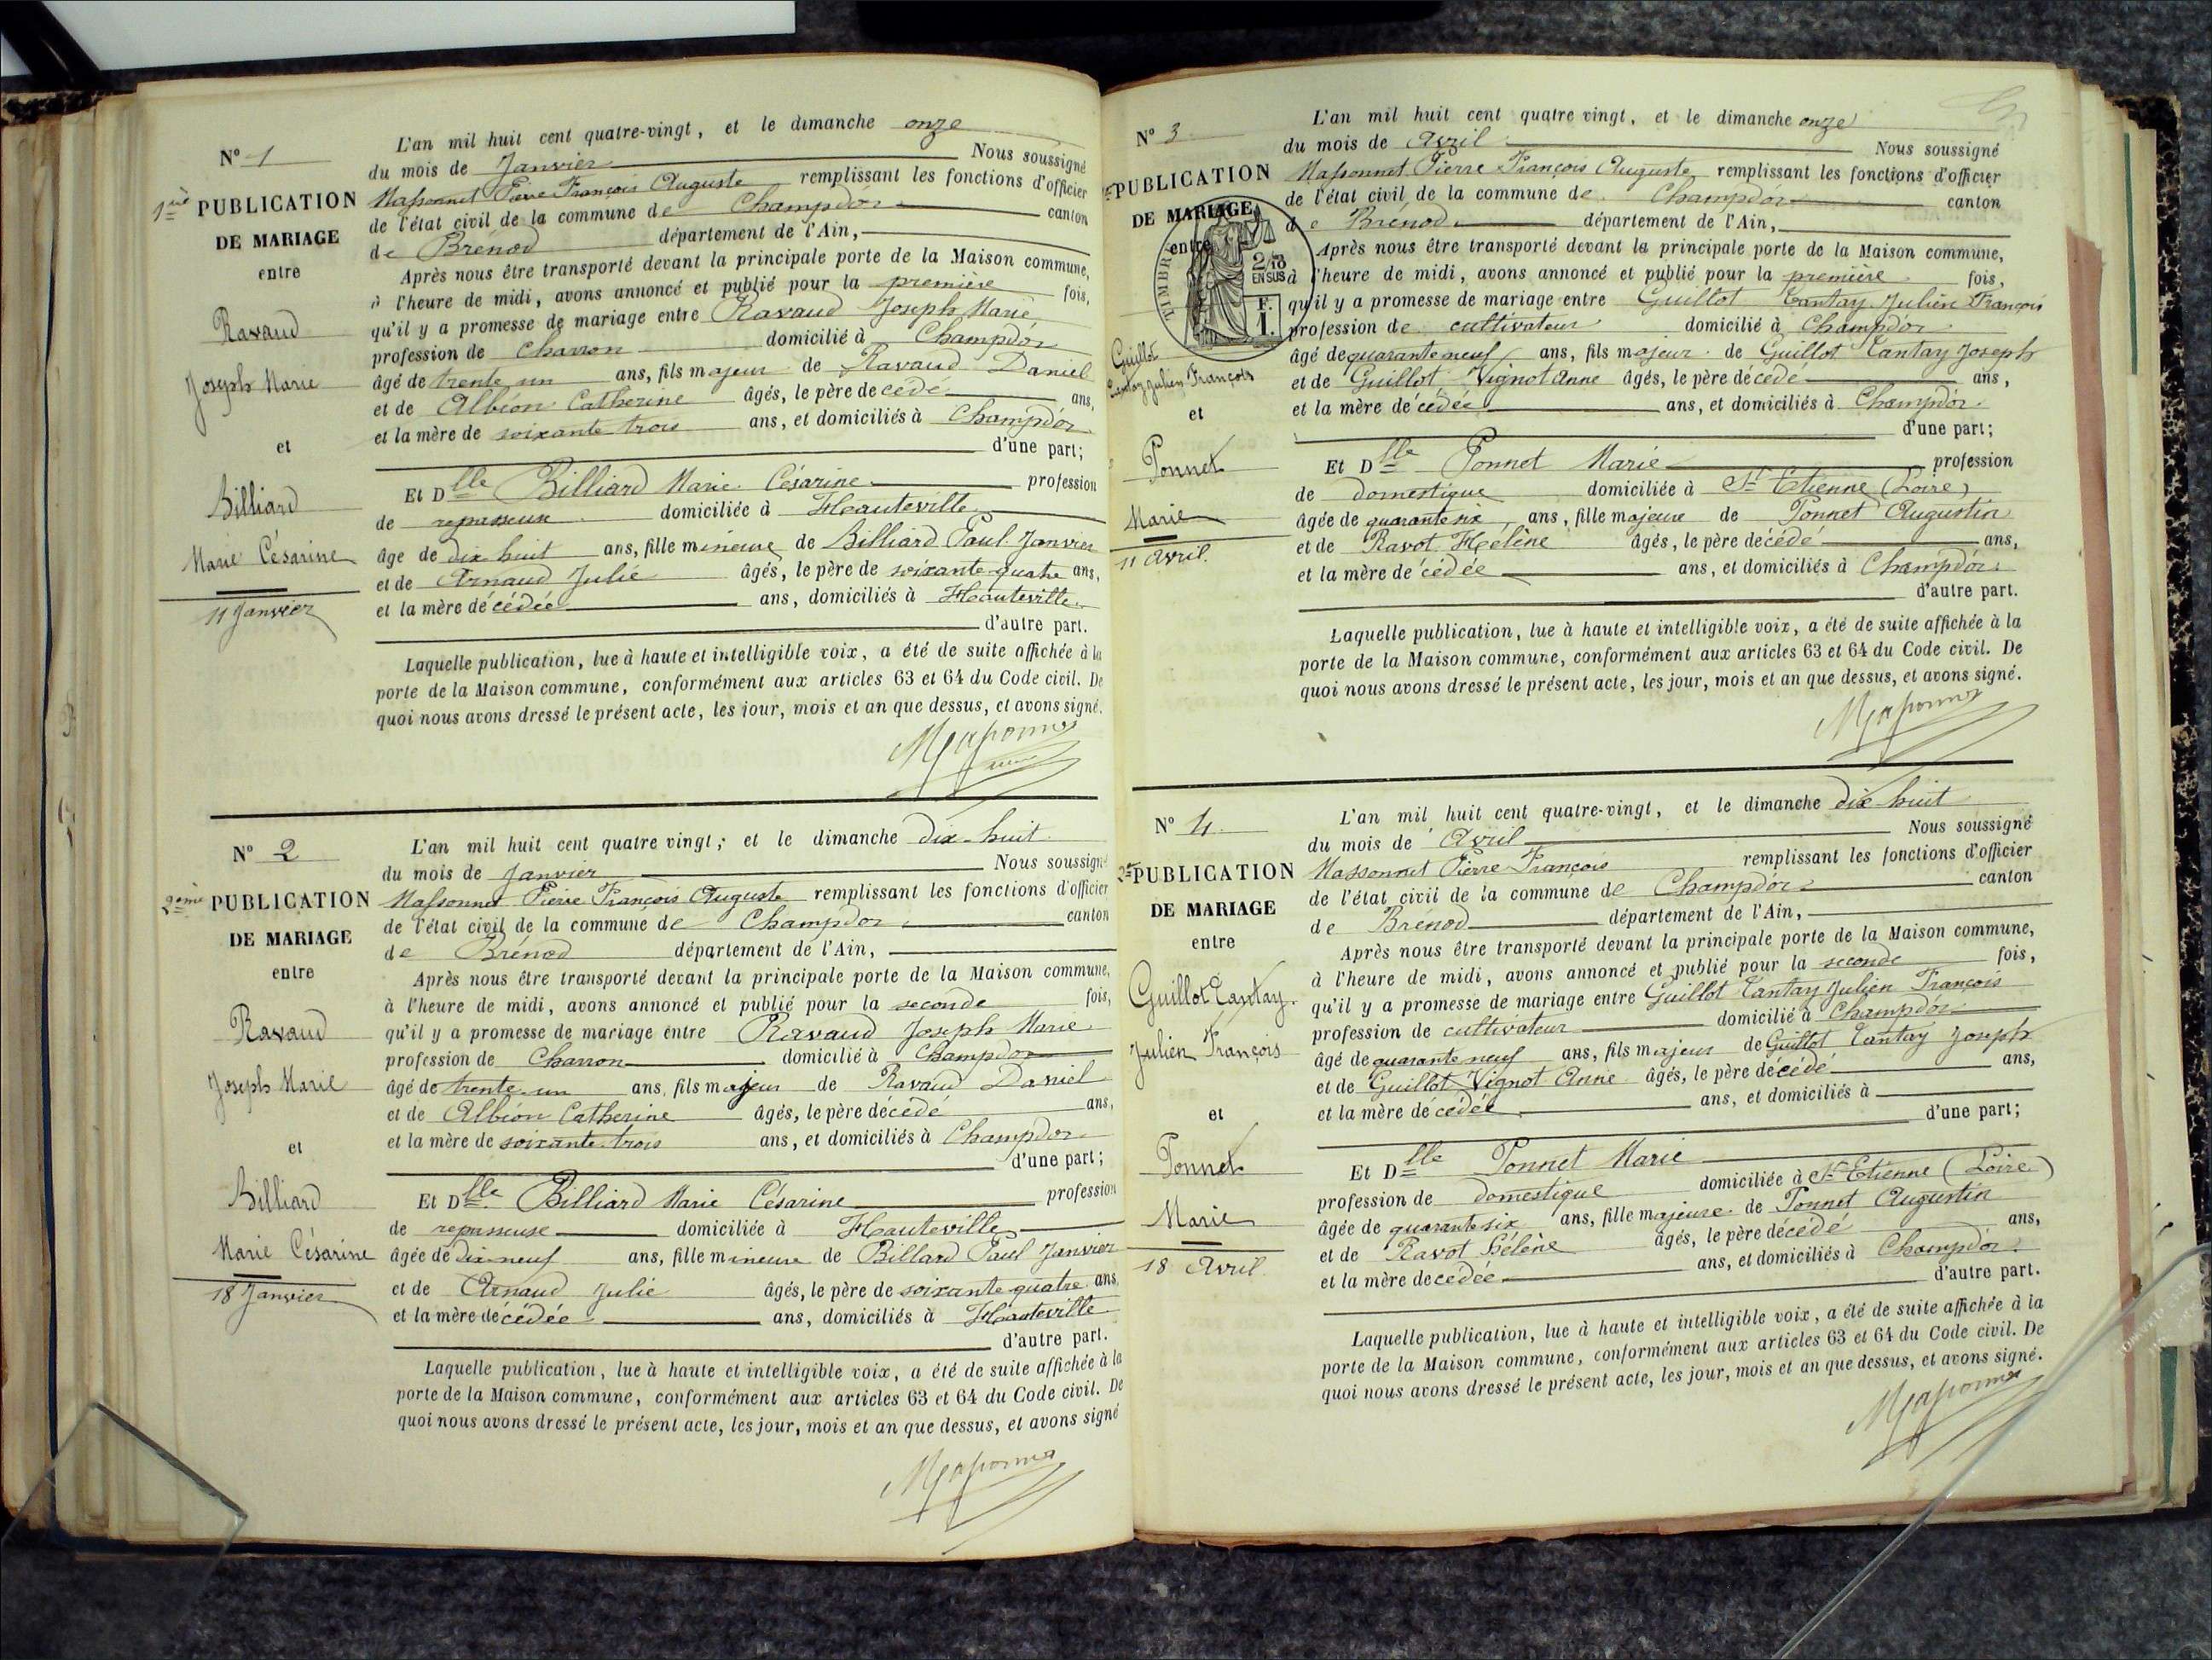 N° 1
1ère PUBLICATION
DE MARIAGE
entre
Ravaud
Joseph Marie
et
Billiard
Marie Césarine
11 Janvier
L'an mil huit cent quatre-vingt, et le dimanche onze
du mois de Janvier Nous soussigné
Massonnet Pierre François Auguste remplissant les fonctions d'officier
de l'état civil de la commune de Champdor canton
de Brénod département de l'Ain,
Après nous être transporté devant la principale porte de la Maison commune,
à l'heure de midi, avons annoncé et publié pour la première fois,
qu'il y a promesse de mariage entre Ravaud Joseph Marie
profession de charron domicilié à Champdor
âgé de trente un ans, fils majeur de Ravaud Daniel
et de Albion Catherine âgés, le père décédé ans,
et la mère de soixante trois ans, et domiciliés à Champdor
d'une part;
Et Dlle Billiard Marie Césarine profession
de repasseuse domiciliée à Hauteville
âge de dix huit ans, fille mineure de Billiard Paul Janvier
et de Arnaud Julie âgés, le père de soixante quatre ans,
et la mère décédée ans, domiciliés à Hauteville
d'autre part.
Laquelle publication, lue à haute et intelligible voix, a été de suite affichée à la
porte de la Maison commune, conformément aux articles 63 et 64 du Code civil. De
quoi nous avons dressé le présent acte, les jour, mois et an que dessus, et avons signé.
Massonnet
N° 2
2ème PUBLICATION
DE MARIAGE
entre
Ravaud
Joseph Marie
et
Billiard
Marie Césarine
18 Janvier
L'an mil huit cent quatre vingt; et le dimanche dix-huit
du mois de Janvier Nous soussigné
Massonnet Pierre François Auguste remplissant les fonctions d'officier
de l'état civil de la commune de Champdor canton
de Brénod département de l'Ain,
Après nous être transporté devant la principale porte de la Maison commune,
à l'heure de midi, avons annoncé et publié pour la seconde fois,
qu'il y a promesse de mariage entre Ravaud Joseph Marie
profession de Charron domicilié à Champdor
âgé de trente un ans, fils majeur de Ravaud Daniel
et de Albion Catherine âgés, le père décédé ans,
et la mère de soixante trois ans, et domiciliés à Champdor
d'une part;
Et Dlle Billiard Marie Césarine profession
de repasseuse domiciliée à Hauteville
âgée de dix neuf ans, fille mineure de Billard Paul Janvier
et de Arnaud Julie âgés, le père de soixante quatre ans,
et la mère décédée ans, domiciliés à Hauteville
d'autre part.
Laquelle publication, lue à haute et intelligible voix, a été de suite affichée à la
porte de la Maison commune, conformément aux articles 63 et 64 du Code civil. De
quoi nous avons dressé le présent acte, les jour, mois et an que dessus, et avons signé
Massonnet
N° 3
PUBLICATION
DE MARIAGE
entre
TIMBRE
2/10
EN SUS
F.
1.
Guillot
Tantay Julien François
et
Ponnet
Marie
11 Avril.
L'an mil huit cent quatre vingt, et le dimanche onze
du mois de Avril Nous soussigné
Massonnet Pierre François Auguste remplissant les fonctions d'officier
de l'état civil de la commune de Champdor canton
de Brénod département de l'Ain,
Après nous être transporté devant la principale porte de la Maison commune,
à l'heure de midi, avons annoncé et publié pour la première fois,
qu'il y a promesse de mariage entre Guillot Tantay Julien François
profession de cultivateur domicilié à Champdor
âgé de quarante neuf ans, fils majeur de Guillot Tantay Joseph
et de Guillot Vignot Anne âgés, le père décédé ans,
et la mère décédée ans, et domiciliés à Champdor.
d'une part;
Et Dlle Ponnet Marie profession
de domestique domiciliée à St Etienne (Loire)
âgée de quarante six ans, fille majeure de Ponnet Augustin
et de Ravot Hélène âgés, le père décédé ans,
et la mère décédée ans, et domiciliés à Champdor.
d'autre part.
Laquelle publication, lue à haute et intelligible voix, a été de suite affichée à la
porte de la Maison commune, conformément aux articles 63 et 64 du Code civil. De
quoi nous avons dressé le présent acte, les jour, mois et an que dessus, et avons signé.
Massonnet
N° 4
2e PUBLICATION
DE MARIAGE
entre
Guillot Tantay.
Julien François
et
Ponnet
Marie
18 Avril.
L'an mil huit cent quatre-vingt, et le dimanche dix huit
du mois de Avril Nous soussigné
Massonnet Pierre François remplissant les fonctions d'officier
de l'état civil de la commune de Champdor canton
de Brénod département de l'Ain,
Après nous être transporté devant la principale porte de la Maison commune,
à l'heure de midi, avons annoncé et publié pour la seconde fois,
qu'il y a promesse de mariage entre Guillot Tantay Julien François
profession de cultivateur domicilié à Champdor
âgé de quarante neuf ans, fils majeur de Guillot Tantay Joseph
et de Guillot Vignot Anne âgés, le père décédé ans,
et la mère décédée ans, et domiciliés à
d'une part;
Et Dlle Ponnet Marie
profession de domestique domiciliée à St Etienne (Loire)
âgée de quarante six ans, fille majeure de Ponnet Augustin
et de Ravot Hélène âgés, le père décédé ans,
et la mère decédée ans, et domiciliés à Champdor.
d'autre part.
Laquelle publication, lue à haute et intelligible voix, a été de suite affichée à la
porte de la Maison commune, conformément aux articles 63 et 64 du Code civil. De
quoi nous avons dressé le présent acte, les jour, mois et an que dessus, et avons signé.
Massonnet